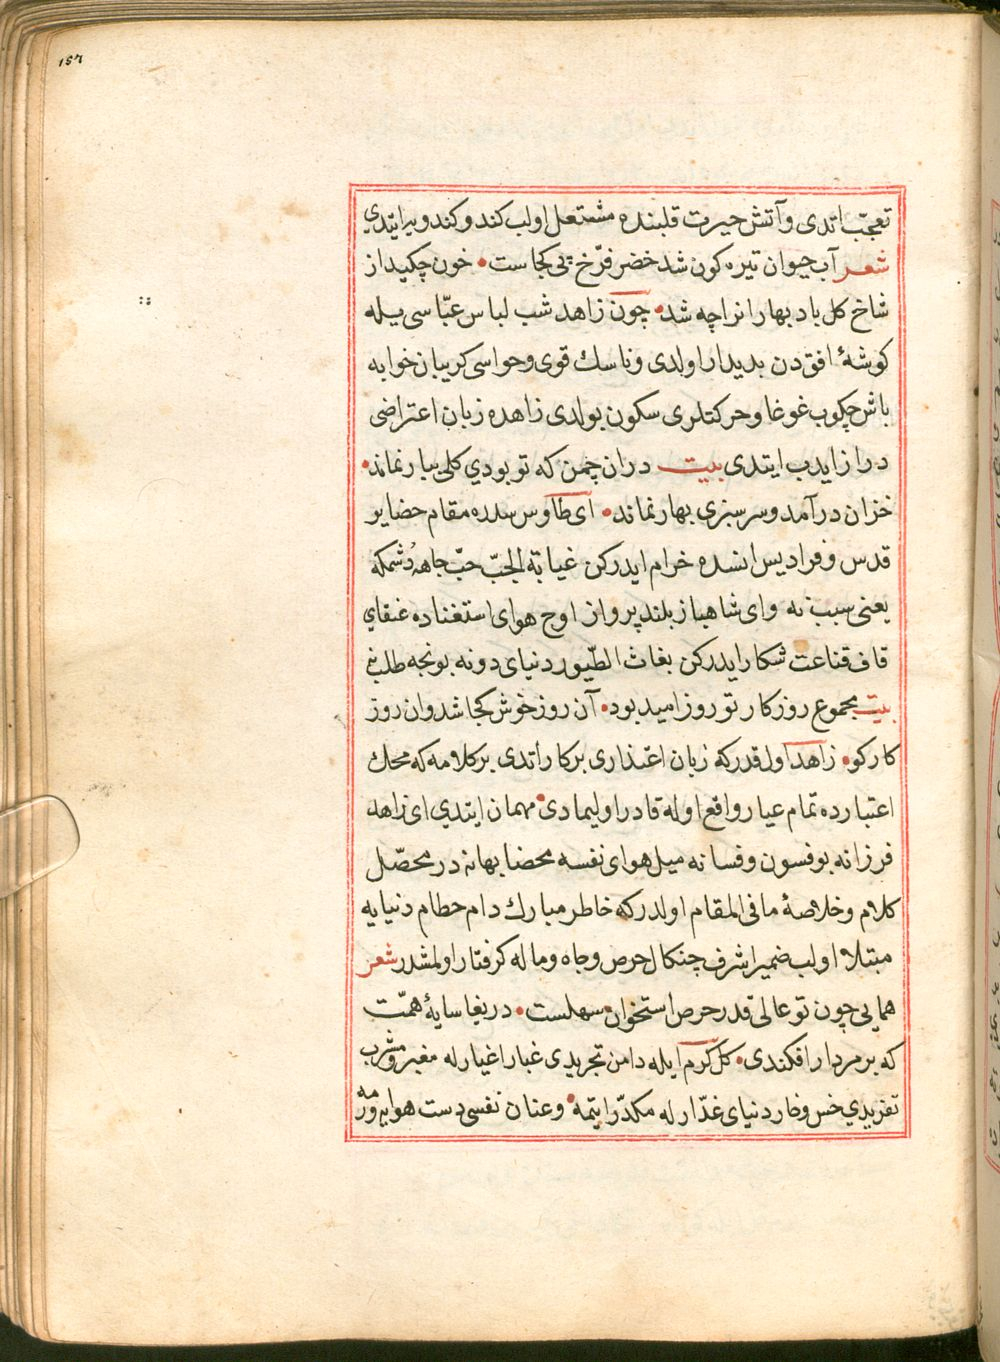 ١٥٦
تعجّب اتدی و آتش حیرت قلبنده مشتعل اولب کندو کندویه ایتدی
شعر آب حیوان تیره کون شد خضر فرّخ پی کجاست • خون چکید از
شاخ کل باد بهارانرا چه شد • چون زاهد شب لباس عبّاسی یله
کوشهٔ افق دن بدیدار اولدی و ناسك قوی و حواسی کریبان خوابه
باش چکوب غوغا و حرکتلری سکون بولدی زاهده زبان اعتراضی
دراز ایدب ایتدی بیت دران چمن که تو بودي کلی ببار نماند •
خزان درآمد و سرسبزی بهار نماند • ای طاوس سدره مقام حضایر
قدس و فرادیس انسده خرام ایدرکن غیابة الجبّ حبّ جاهه دُشمکه
یعنی سبب نه وای شاهباز بلند پرواز اوج هوای استغناده عنقای
قاف قناعت شکار ایدرکن بغاث الطّیور دنیای دونه بونجه طلب نه
بیت مجموع روزکار تو روز امید بود • آن روز خوش کجا شد وان روز
کارکو • زاهد اول قدرکه زبان اعتذاری برکار اتدی برکلامه که محك
اعتبارده تمام عیار واقع اوله قادر اولیمادی • مهمان ایتدي ای زاهد
فرزانه بو فسون و فسانه میل هوای نفسه محضا بهانه در محصّل
کلام و خلاصهٔ ما فی المقام اولدرکه خاطر مبارك دام حطام دنیایه
مبتلا اولب ضمیر اشرف چنکال حرص و جاه و ماله کرفتار اولمشدر شعر
همایی چون تو عالی قدر حرص استخوان سهلست • دریغا سایهٔ همّت
که بر مردار افکندی • کل کرم ایله دامن تجریدی غبار اغیار له مغبر و مشرب
تفریدي خس و خار دنیای غدّار له مکدّر ایتمه • و عنان نفسی دست هوایه ورمه